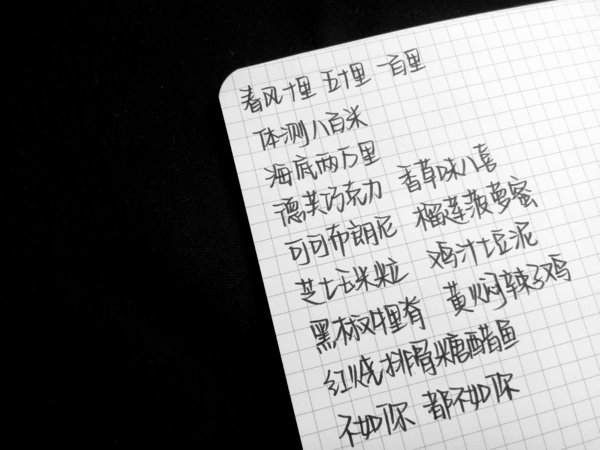 春风十里 五十里 一百里
体测八百米
海底两万里
德芙巧克力 香草味八喜
可可布朗尼 榴莲菠萝蜜
芝士玉米粒 鸡汁土豆泥
黑椒牛里脊 黄焖辣子鸡
红烧排骨糖醋鱼
不如你 都不如你